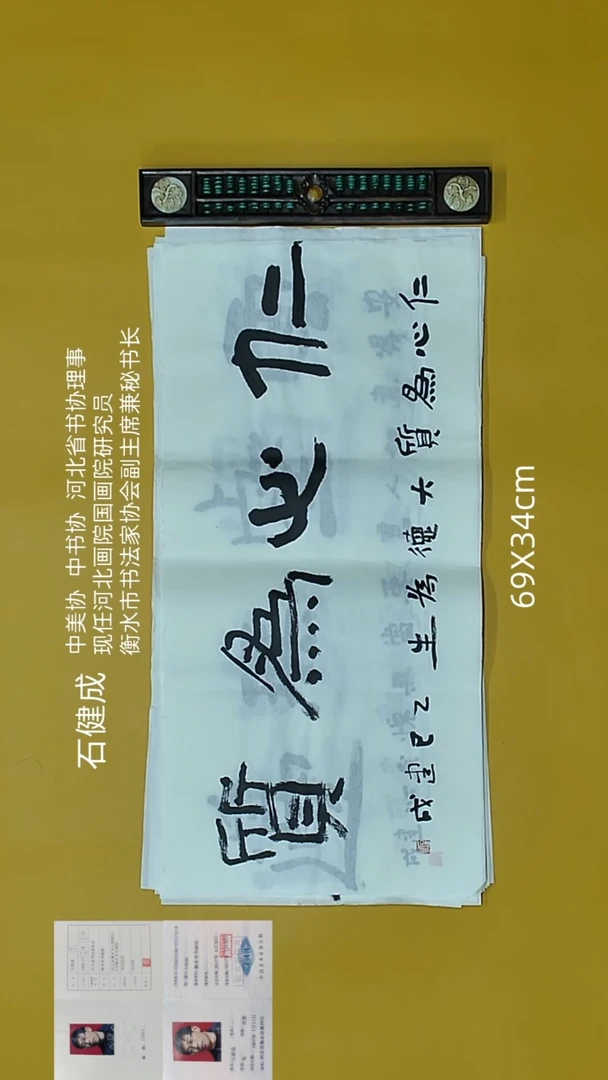 石健成
中美协 中书协 河北省书协理事
现任河北画院国画院研究员
衡水市书法家协会副主席兼秘书长
仁心為質
仁心為質大德為生乙巳建成
69X34cm